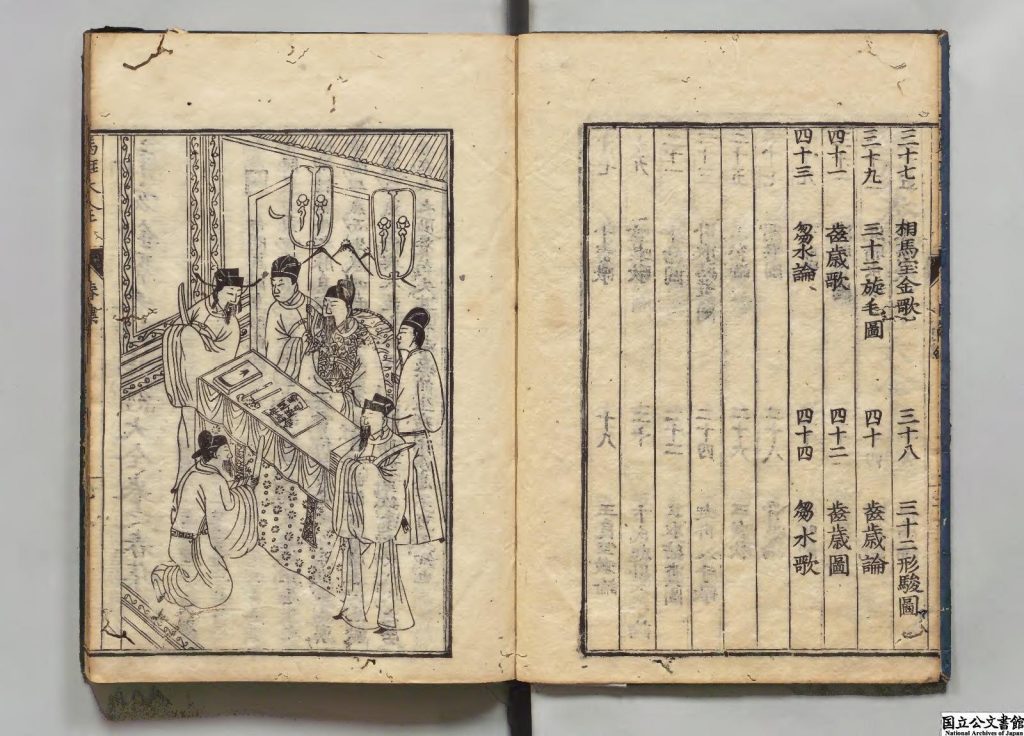 三十七 相馬宝金歌 三十八 三十二形駿圖
三十九 三十二旋毛圖 四十 齒歲論
四十一 齒歲歌 四十二 齒歲圖
四十三 芻水論 四十四 芻水歌
国立公文書館
National Archives of Japan